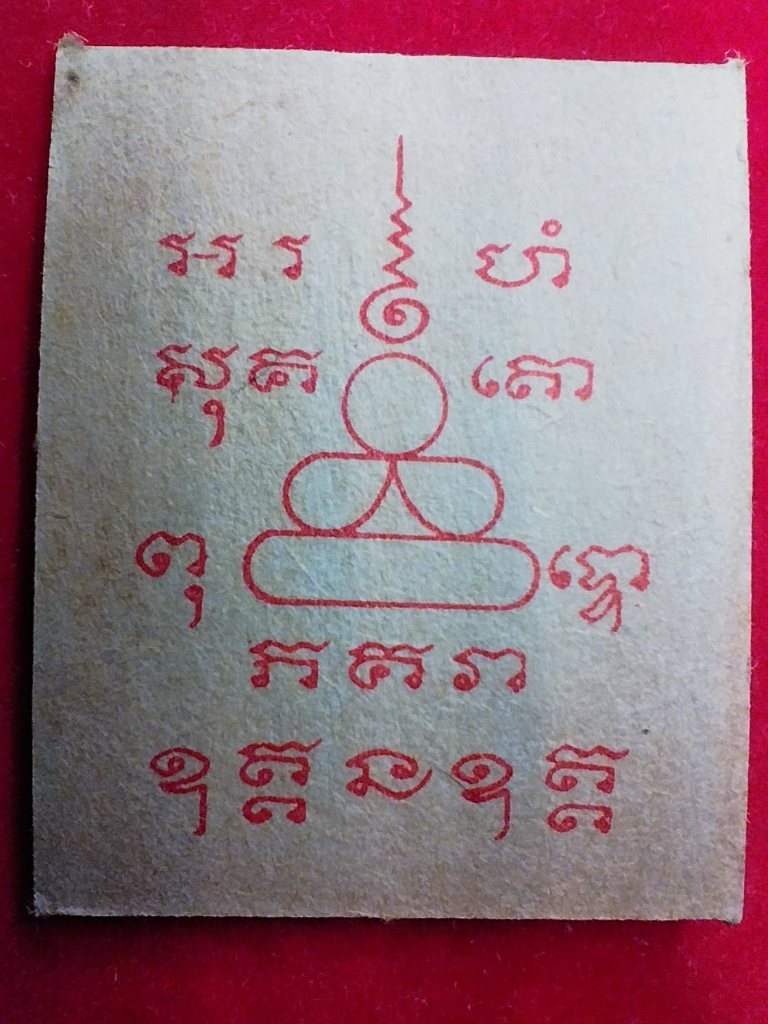 អ រ ហំ
សុគ តោ
ពុ ទ្ធោ
ភ គ វា
ឧ ត្ត ន ឧ ត្ត